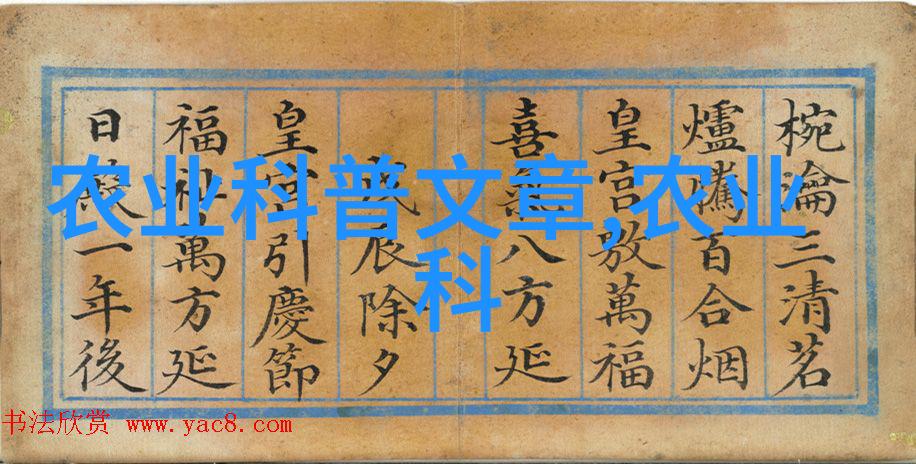 农业科普文章,农业
科
椀瀹三清茗
爐騰百合烟
皇宮敷萬福
喜氣八方延
辰除夕
皇宮引慶節
福萬方延
日一年後
书法欣赏 www.yac8.com